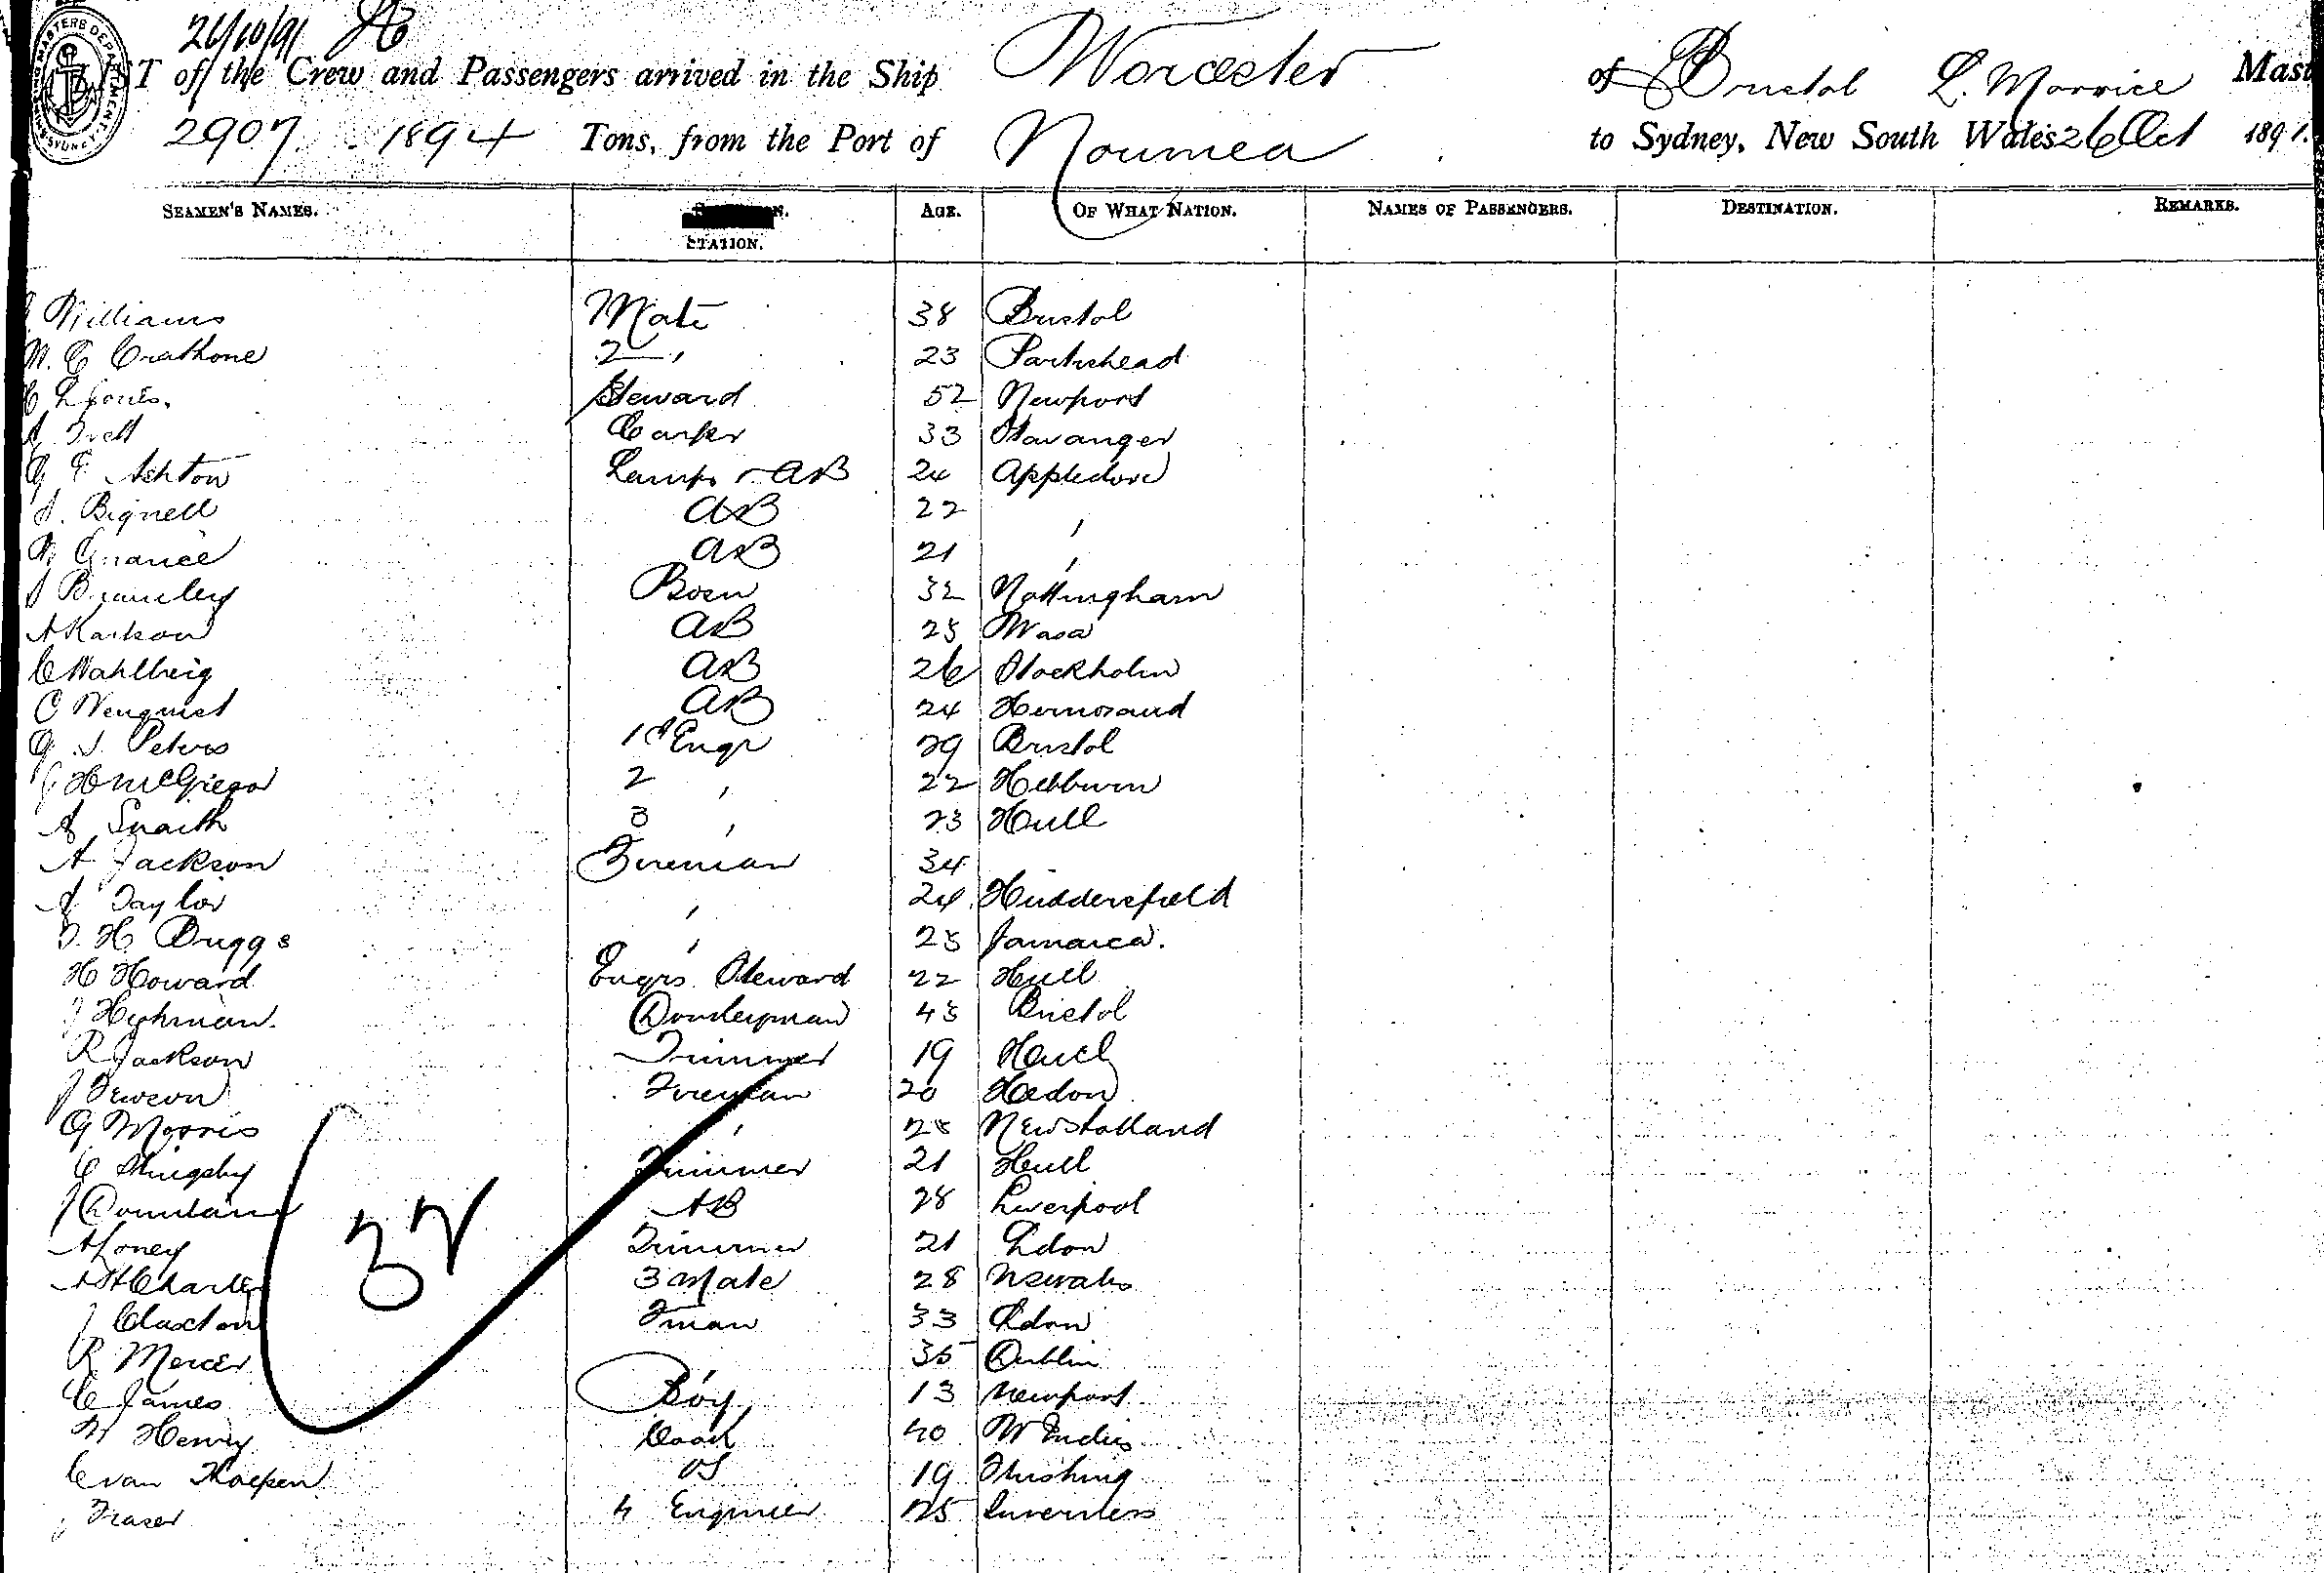 26/10/91
LIST of the Crew and Passengers arrived in the Ship Worcester of Bristol L. Morrice Mast
2907 1894 Tons, from the Port of Noumea to Sydney, New South Wales 26 Oct 1891.
SEAMEN'S NAMES. STATION. AGE. OF WHAT NATION. NAMES OF PASSENGERS. DESTINATION. REMARKS.
Williams Mate 38 Bristol
W. C Crathone 2 " 23 Portishead
Jones. Steward 52 Newport
Carpr 33 Stavanger
G F Ashton Lamps & AB 24 Appledore
J. Bignell AB 22 "
W AB 21 "
J Bramley Bosn 32 Nottingham
A Karlson AB 25 Wasa
C Wahlberg AB 26 Stockholm
C Wenquist AB 24 Hernosand
G. J. Peters 1st Engr 29 Bristol
J H McGregor 2 " 22 Hebburn
A Snaith 3 " 23 Hull
A Jackson Fireman 34
A Taylor " 24 Huddersfield
T. H. Briggs " 25 Jamaica.
H Howard Engrs. Steward 22 Hull
J Hyhman. Donkeyman 45 Bristol
R Jackson Trimmer 19 Hull
J Fireman 20 Hedon
G Morris " 28 New Holland
C Slingsby Trimmer 21 Hull
J AB 28 Liverpool
A Toney Trimmer 21 Ldon
A H Charles 3 Mate 28 NSWales
J Claxton Fman 33 Ldon
R Mercer 35 Dublin
C James Boy 13 Newport
W Henry Cook 40 W Indies
C van OS 19 Flushing
J Fraser 4 Engineer 25 Inverness
32